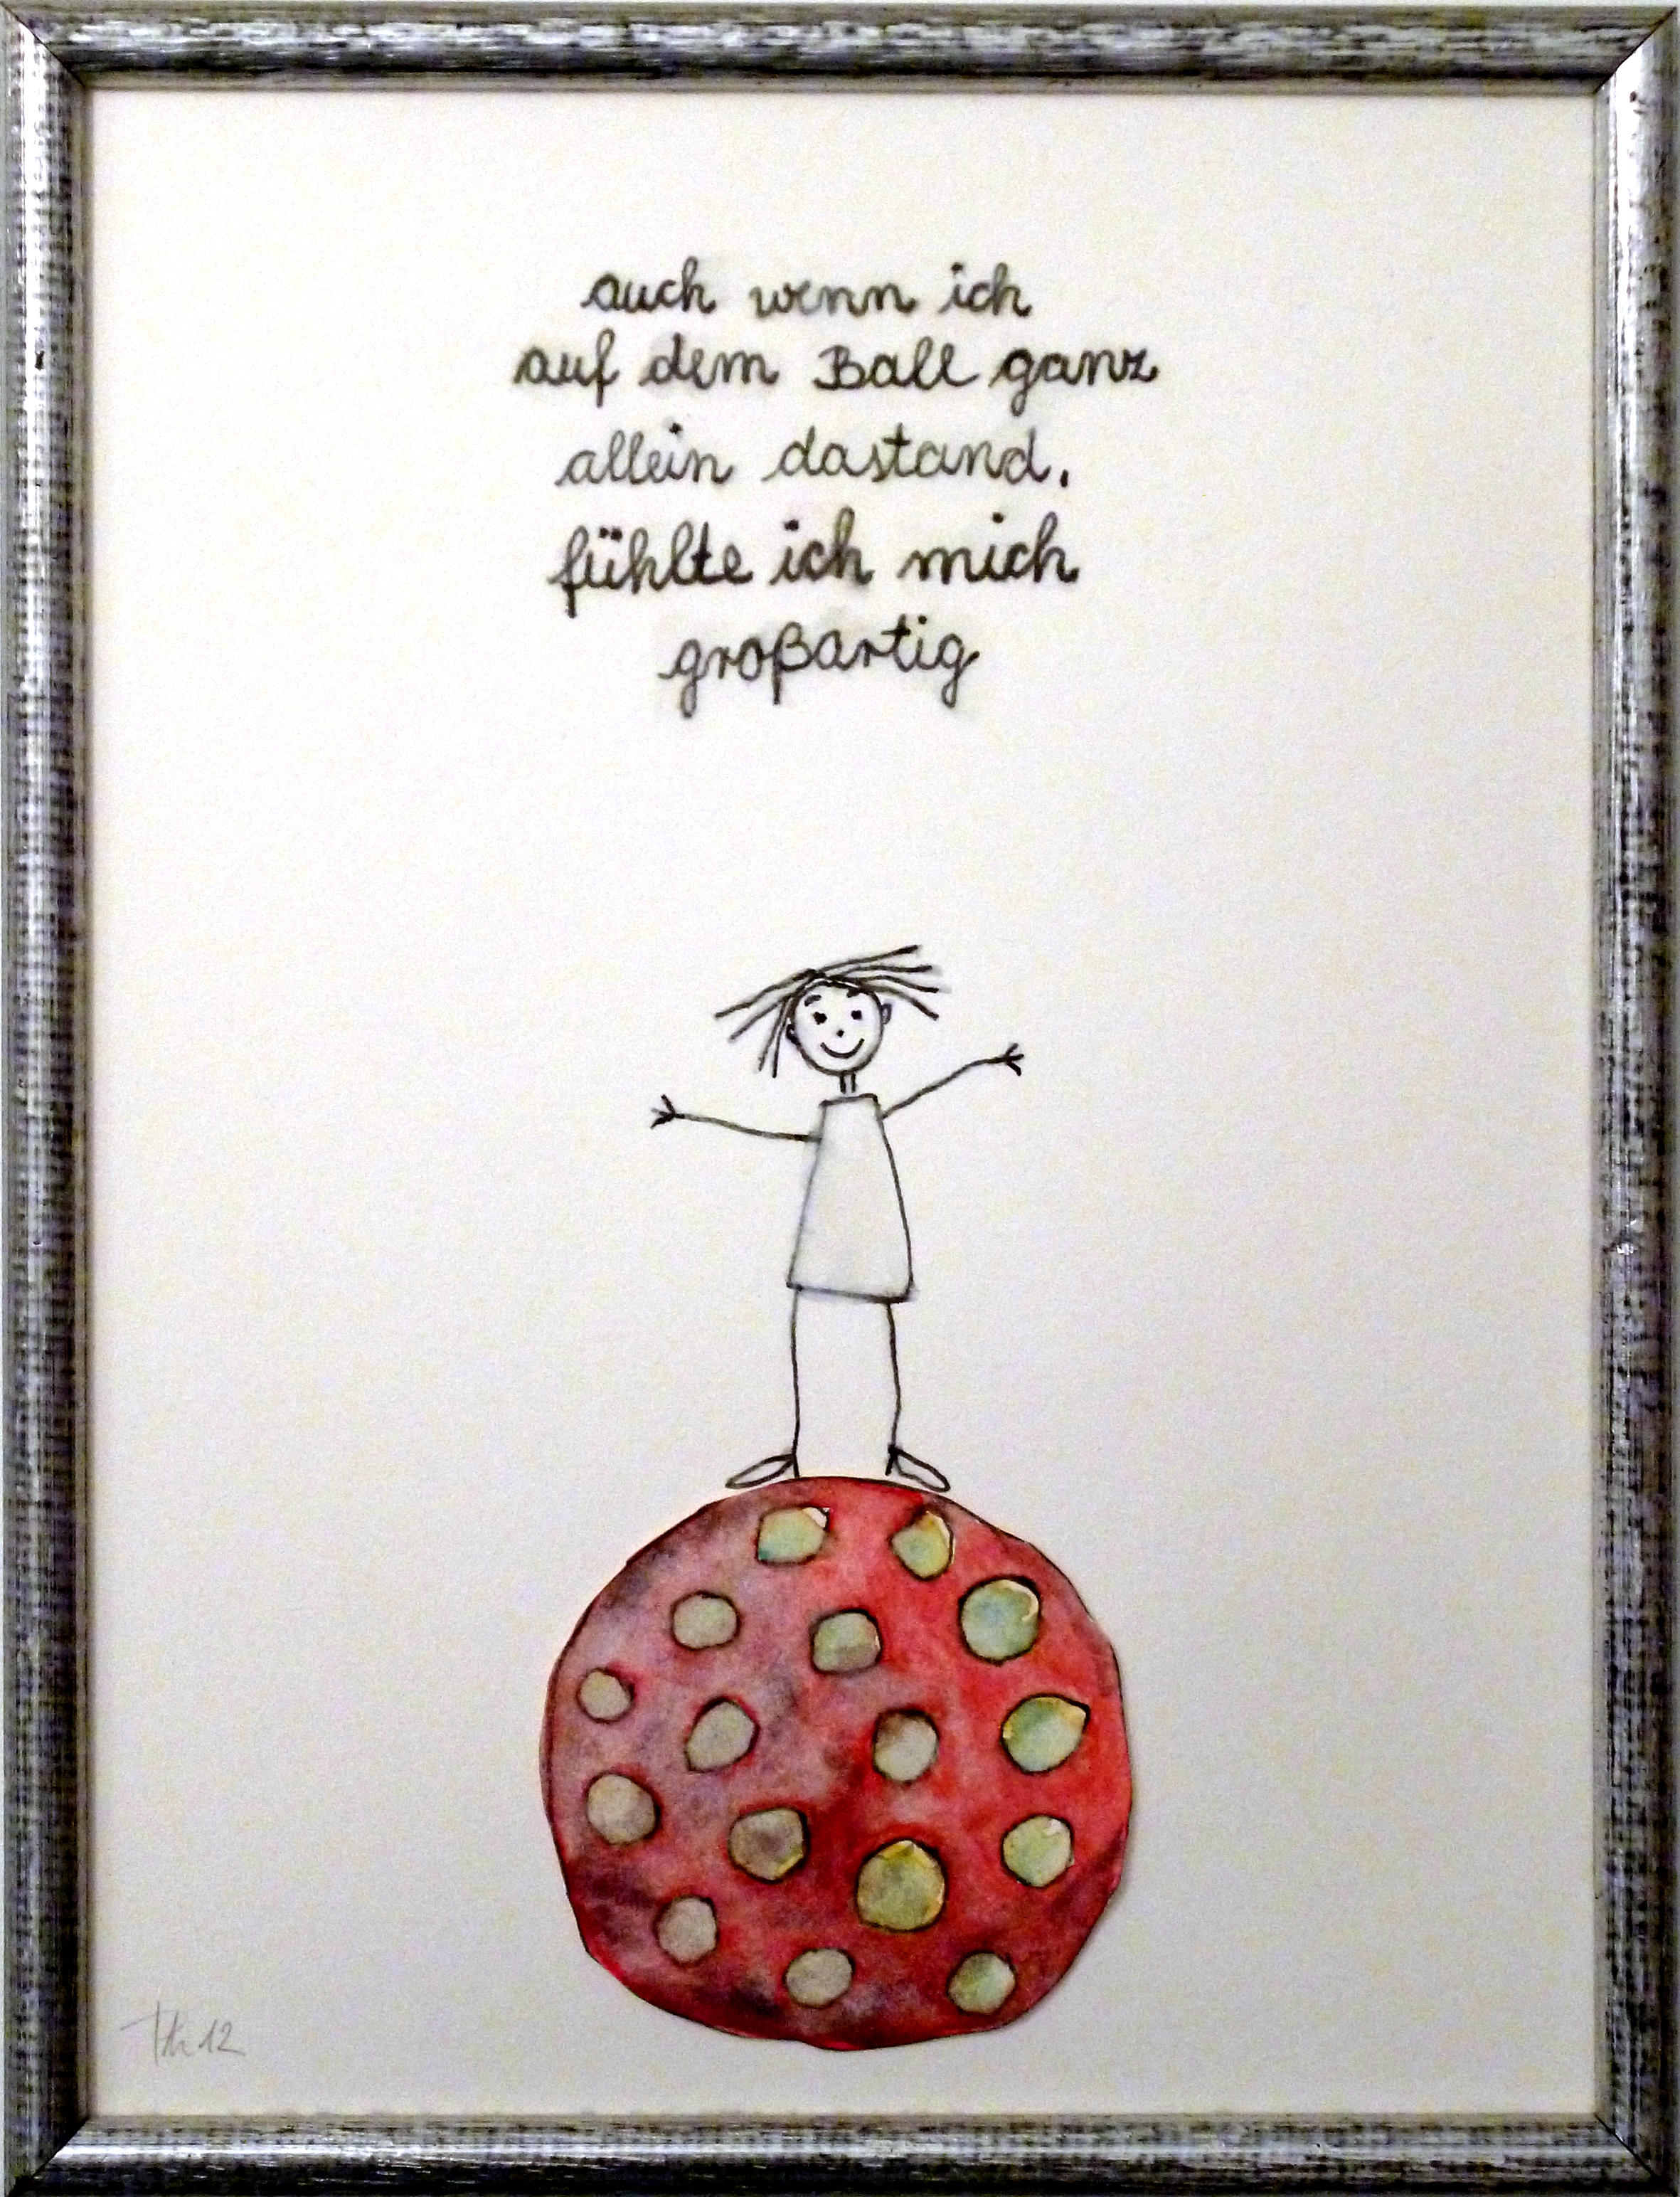 auch wenn ich
auf dem Ball ganz
allein dastand,
fühlte ich mich
großartig
12